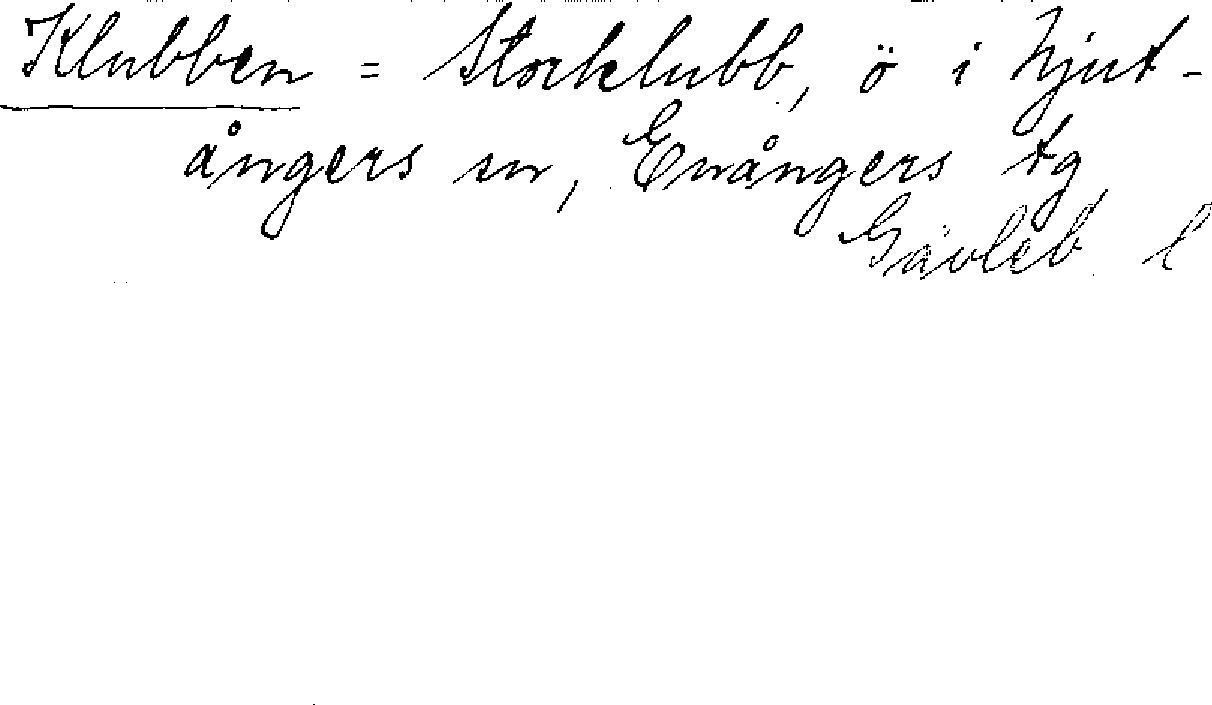 Klubben = Storklubb, ö i Njut-
ångers sn, Enångers tg
Gävleb. l